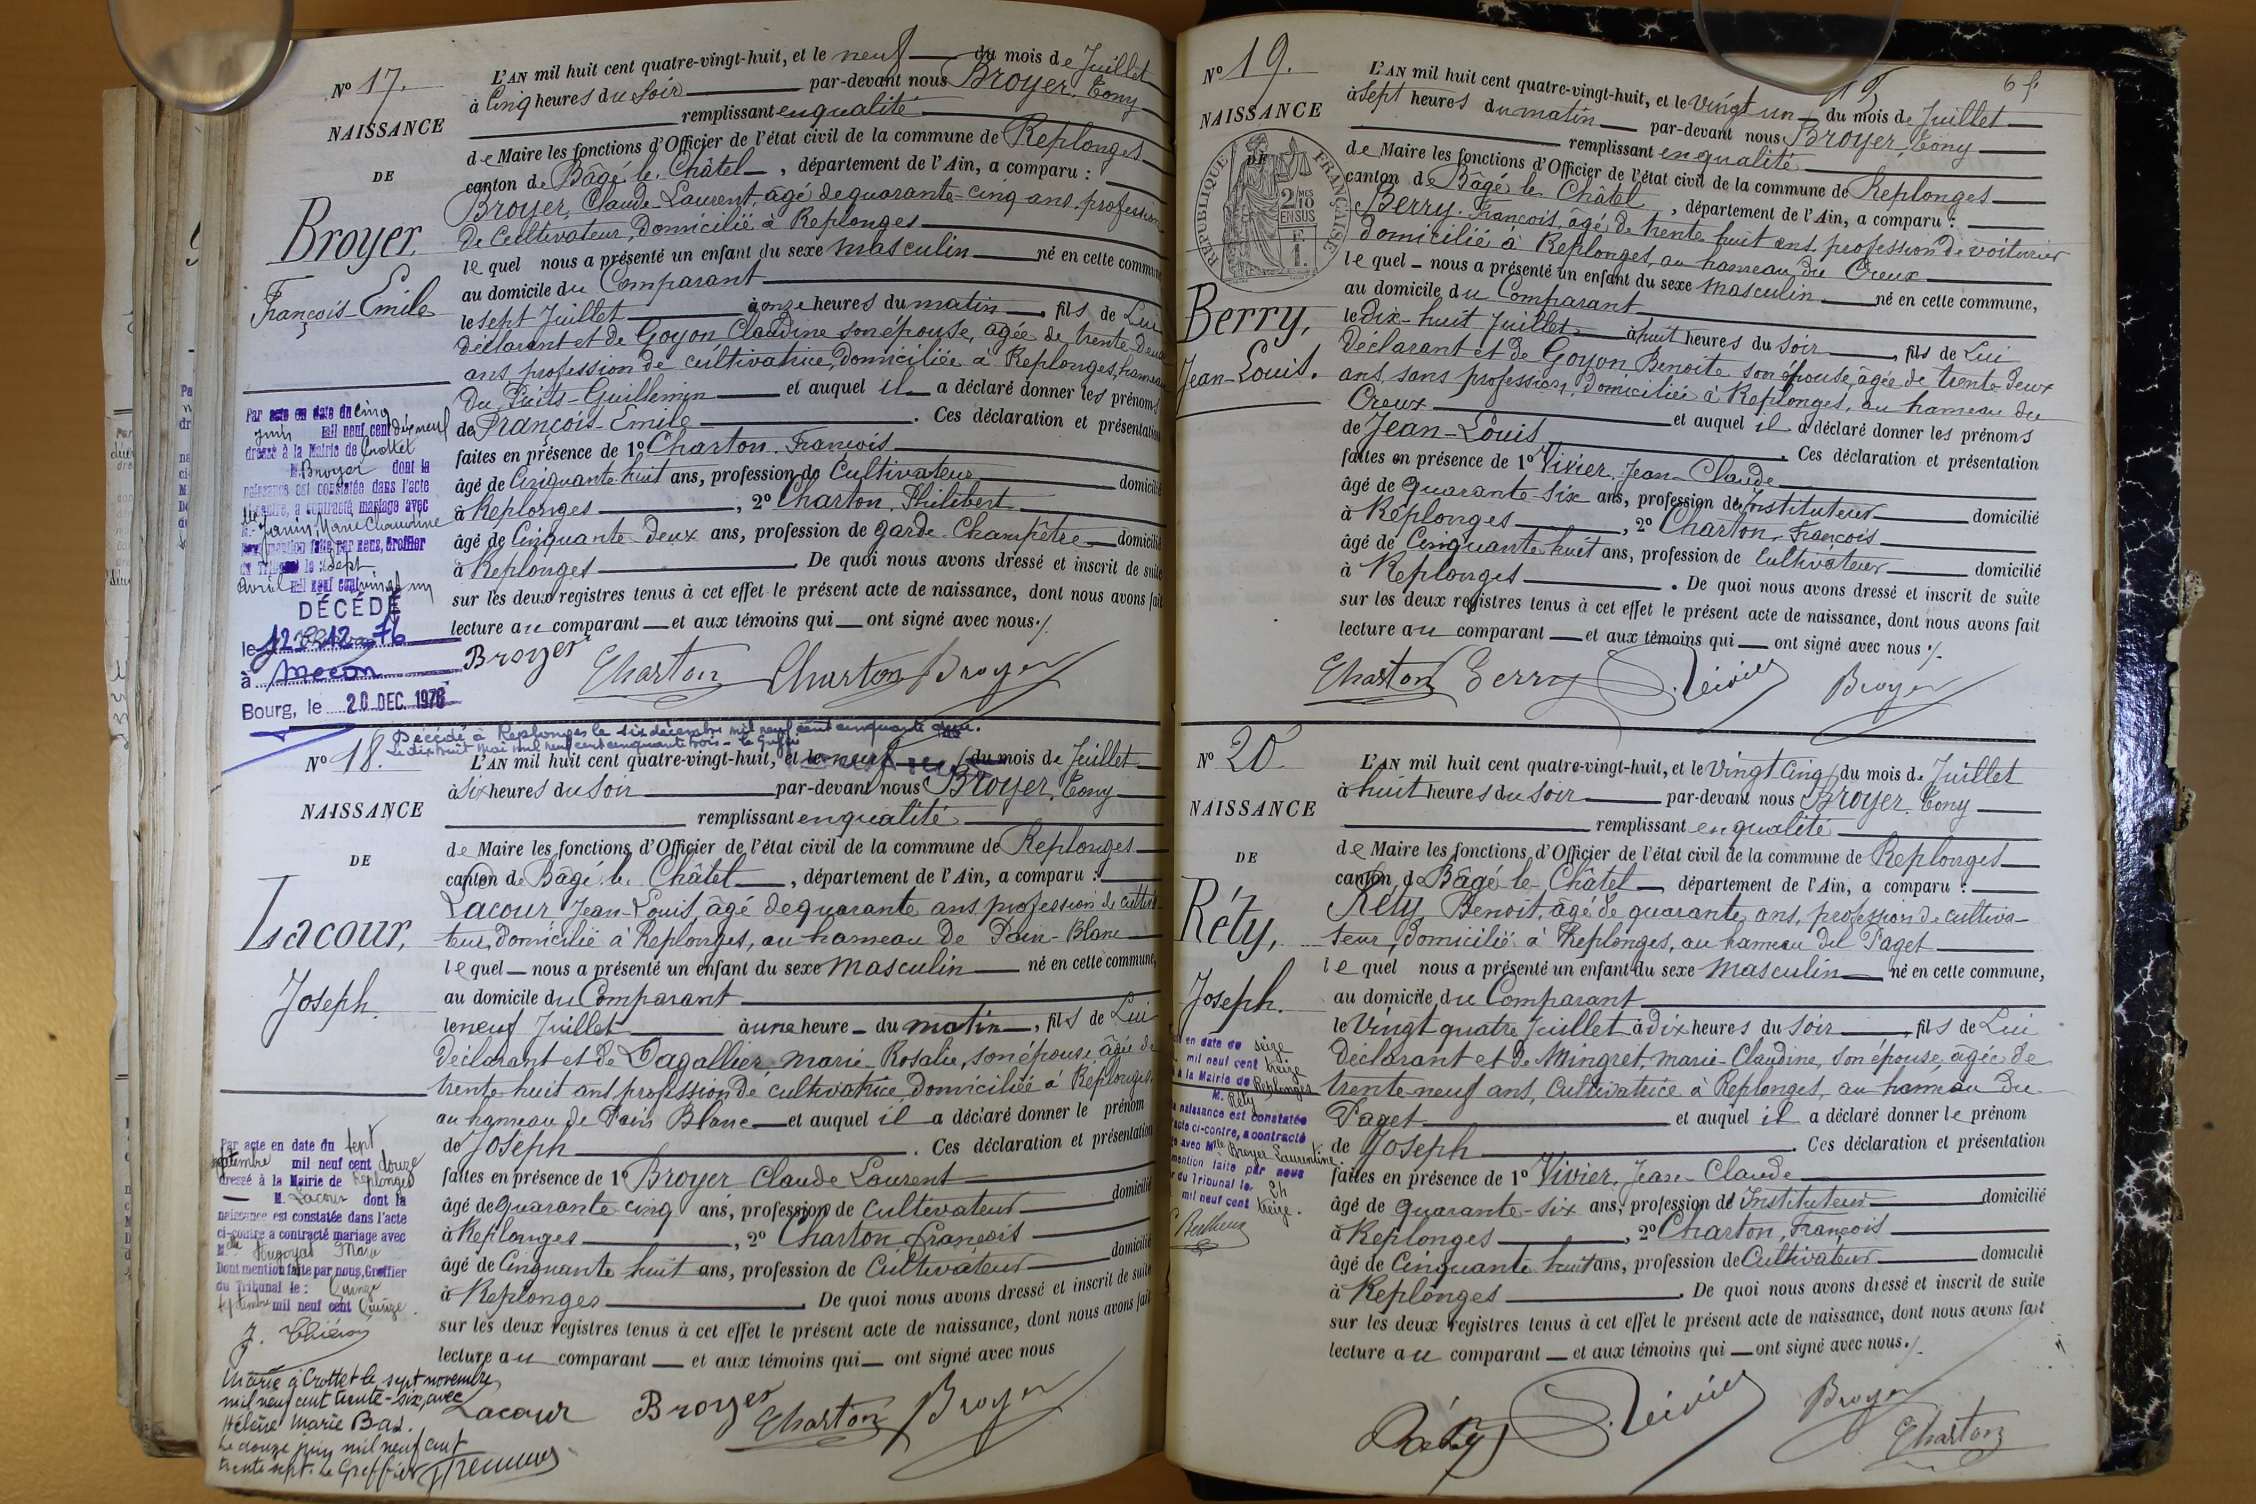 Nº 17.
NAISSANCE
DE
Broyer
François-Emile
L'AN mil huit cent quatre-vingt-huit, et le neuf du mois de Juillet
à Cinq heures du soir par-devant nous Broyer, Tony
remplissant en qualité
de Maire les fonctions d'Officier de l'état civil de la commune de Replonges
canton de Bâgé le Châtel, département de l'Ain, a comparu :
Broyer, Claude-Laurent, âgé de quarante-cinq ans, profession
de Cultivateur, domicilié à Replonges
lequel nous a présenté un enfant du sexe masculin né en cette commune
au domicile du Comparant
le sept Juillet à onze heures du matin, fils de Lui
déclarant et de Goyon Claudine son épouse, âgée de trente-deux
ans profession de cultivatrice, domiciliée à Replonges, hameau
du Puits-Guillemin et auquel il a déclaré donner les prénoms
de François-Emile. Ces déclaration et présentation
faites en présence de 1º Charton, François
âgé de Cinquante-huit ans, profession de Cultivateur domicilié
à Replonges, 2º Charton, Philibert
âgé de Cinquante-deux ans, profession de garde-Champêtre domicilié
à Replonges De quoi nous avons dressé et inscrit de suite
sur les deux registres tenus à cet effet le présent acte de naissance, dont nous avons fait
lecture au comparant et aux témoins qui ont signé avec nous./.
Broyer Charton Charton Broyer
Par acte en date du cinq
juin mil neuf cent dix neuf
dressé à la Mairie de Crottet
M. Broyer dont la
naissance est constatée dans l'acte
ci-contre, a contracté mariage avec
Mlle Janin, Marie Claudine
Dont mention faite par nous, Greffier
du Tribunal le sept
avril mil neuf cent vingt un
DÉCÉDÉ
le 12 12 76
à Macon
Bourg, le 20 DEC. 1976
Décédé à Replonges le six décembre mil neuf cent cinquante deux.
Le dix huit mai mil neuf cent cinquante trois - le Greffier
Nº 18.
NAISSANCE
DE
Lacour,
Joseph.
L'AN mil huit cent quatre-vingt-huit, et le neuf du mois de Juillet
à six heures du soir par-devant nous Broyer, Tony
remplissant en qualité
de Maire les fonctions d'Officier de l'état civil de la commune de Replonges
canton de Bâgé le Châtel, département de l'Ain, a comparu :
Lacour, Jean-Louis, âgé de quarante ans, profession de cultiva-
teur, domicilié à Replonges, au hameau de Pain-Blanc
lequel nous a présenté un enfant du sexe masculin né en cette commune,
au domicile du Comparant
le neuf Juillet à une heure du matin, fils de Lui
déclarant et de Dagallier, Marie-Rosalie, son épouse, âgée de
trente-huit ans, profession de cultivatrice, domiciliée à Replonges,
au hameau de Pain Blanc et auquel il a déclaré donner le prénom
de Joseph. Ces déclaration et présentation
faites en présence de 1º Broyer Claude Laurent
âgé de quarante cinq ans, profession de cultivateur domicilié
à Replonges, 2º Charton, François
âgé de Cinquante huit ans, profession de Cultivateur domicilié
à Replonges. De quoi nous avons dressé et inscrit de suite
sur les deux registres tenus à cet effet le présent acte de naissance, dont nous avons fait
lecture au comparant et aux témoins qui ont signé avec nous
Lacour Broyer Charton Broyer
Par acte en date du sept
septembre mil neuf cent douze
dressé à la Mairie de Replonges
M. Lacour dont la
naissance est constatée dans l'acte
ci-contre a contracté mariage avec
Mlle Marie
Dont mention faite par nous, Greffier
du Tribunal le : Quinze
septembre mil neuf cent Quinze.
Marié à Crottet le sept novembre
mil neuf cent trente-six, avec
Hélène Marie Bas.
Le douze juin mil neuf cent
trente sept. Le Greffier
19 6 f.
Nº 19.
NAISSANCE
DE
RÉPUBLIQUE FRANÇAISE
2 MES 2/10 EN SUS
F. 1.
Berry,
Jean-Louis.
L'AN mil huit cent quatre-vingt-huit, et le vingt un du mois de Juillet
à sept heures du matin par-devant nous Broyer, Tony
remplissant en qualité
de Maire les fonctions d'Officier de l'état civil de la commune de Replonges
canton de Bâgé le Châtel, département de l'Ain, a comparu :
Berry, François, âgé de trente huit ans, profession de voiturier
domicilié à Replonges, au hameau du Creux
lequel nous a présenté un enfant du sexe masculin né en cette commune,
au domicile du Comparant
le dix-huit Juillet à huit heures du soir, fils de Lui
déclarant et de Goyon Benoite son épouse, âgée de trente deux
ans, sans profession, domiciliée à Replonges, au hameau du
Creux et auquel il a déclaré donner les prénoms
de Jean-Louis. Ces déclaration et présentation
faites en présence de 1º Vivier, Jean-Claude
âgé de quarante-six ans, profession de Instituteur domicilié
à Replonges, 2º Charton, François
âgé de Cinquante huit ans, profession de Cultivateur domicilié
à Replonges. De quoi nous avons dressé et inscrit de suite
sur les deux registres tenus à cet effet le présent acte de naissance, dont nous avons fait
lecture au comparant et aux témoins qui ont signé avec nous ./.
Charton Berry Vivier Broyer
Nº 20.
NAISSANCE
DE
Réty,
Joseph.
L'AN mil huit cent quatre-vingt-huit, et le vingt cinq du mois de Juillet
à huit heures du soir par-devant nous Broyer, Tony
remplissant en qualité
de Maire les fonctions d'Officier de l'état civil de la commune de Replonges
canton de Bâgé le Châtel, département de l'Ain, a comparu :
Réty, Benoit, âgé de quarante ans, profession de cultiva-
teur, domicilié à Replonges, au hameau du Paget
lequel nous a présenté un enfant du sexe masculin né en cette commune,
au domicile du Comparant
le vingt quatre Juillet à dix heures du soir, fils de Lui
déclarant et de Mingret, Marie-Claudine, son épouse, âgée de
trente-neuf ans, Cultivatrice à Replonges, au hameau du
Paget et auquel il a déclaré donner le prénom
de Joseph. Ces déclaration et présentation
faites en présence de 1º Vivier, Jean-Claude
âgé de quarante-six ans, profession de Instituteur domicilié
à Replonges, 2º Charton, François
âgé de Cinquante huit ans, profession de Cultivateur domicilié
à Replonges. De quoi nous avons dressé et inscrit de suite
sur les deux registres tenus à cet effet le présent acte de naissance, dont nous avons fait
lecture au comparant et aux témoins qui ont signé avec nous./.
Réty Vivier Broyer Charton
en date du seize
mil neuf cent treize
à la Mairie de Replonges
M. Réty
naissance est constatée
acte ci-contre, a contracté
avec Mlle Broyer Laurentine
mention faite par nous
du Tribunal le 24
mil neuf cent treize.